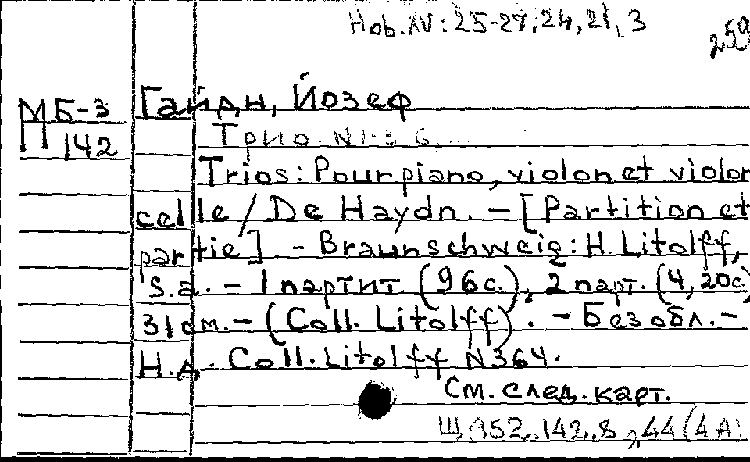 Hob. XV: 25-27, 24, 21, 3
259
МБ-3 Гайдн, Йозеф
П 142 Трио. N1-6.
Trios: Pour piano, violon et violon
celle / De Haydn. – [Partition et
partie] – Braunschweig: H. Litolff,
S.a. – 1 партит (96 с.), 2 парт. (4, 20с)
31 см. – (Coll. Litolff). – Без обл. –
Н.д. Coll. Litolff N 364.
См. след. карт.